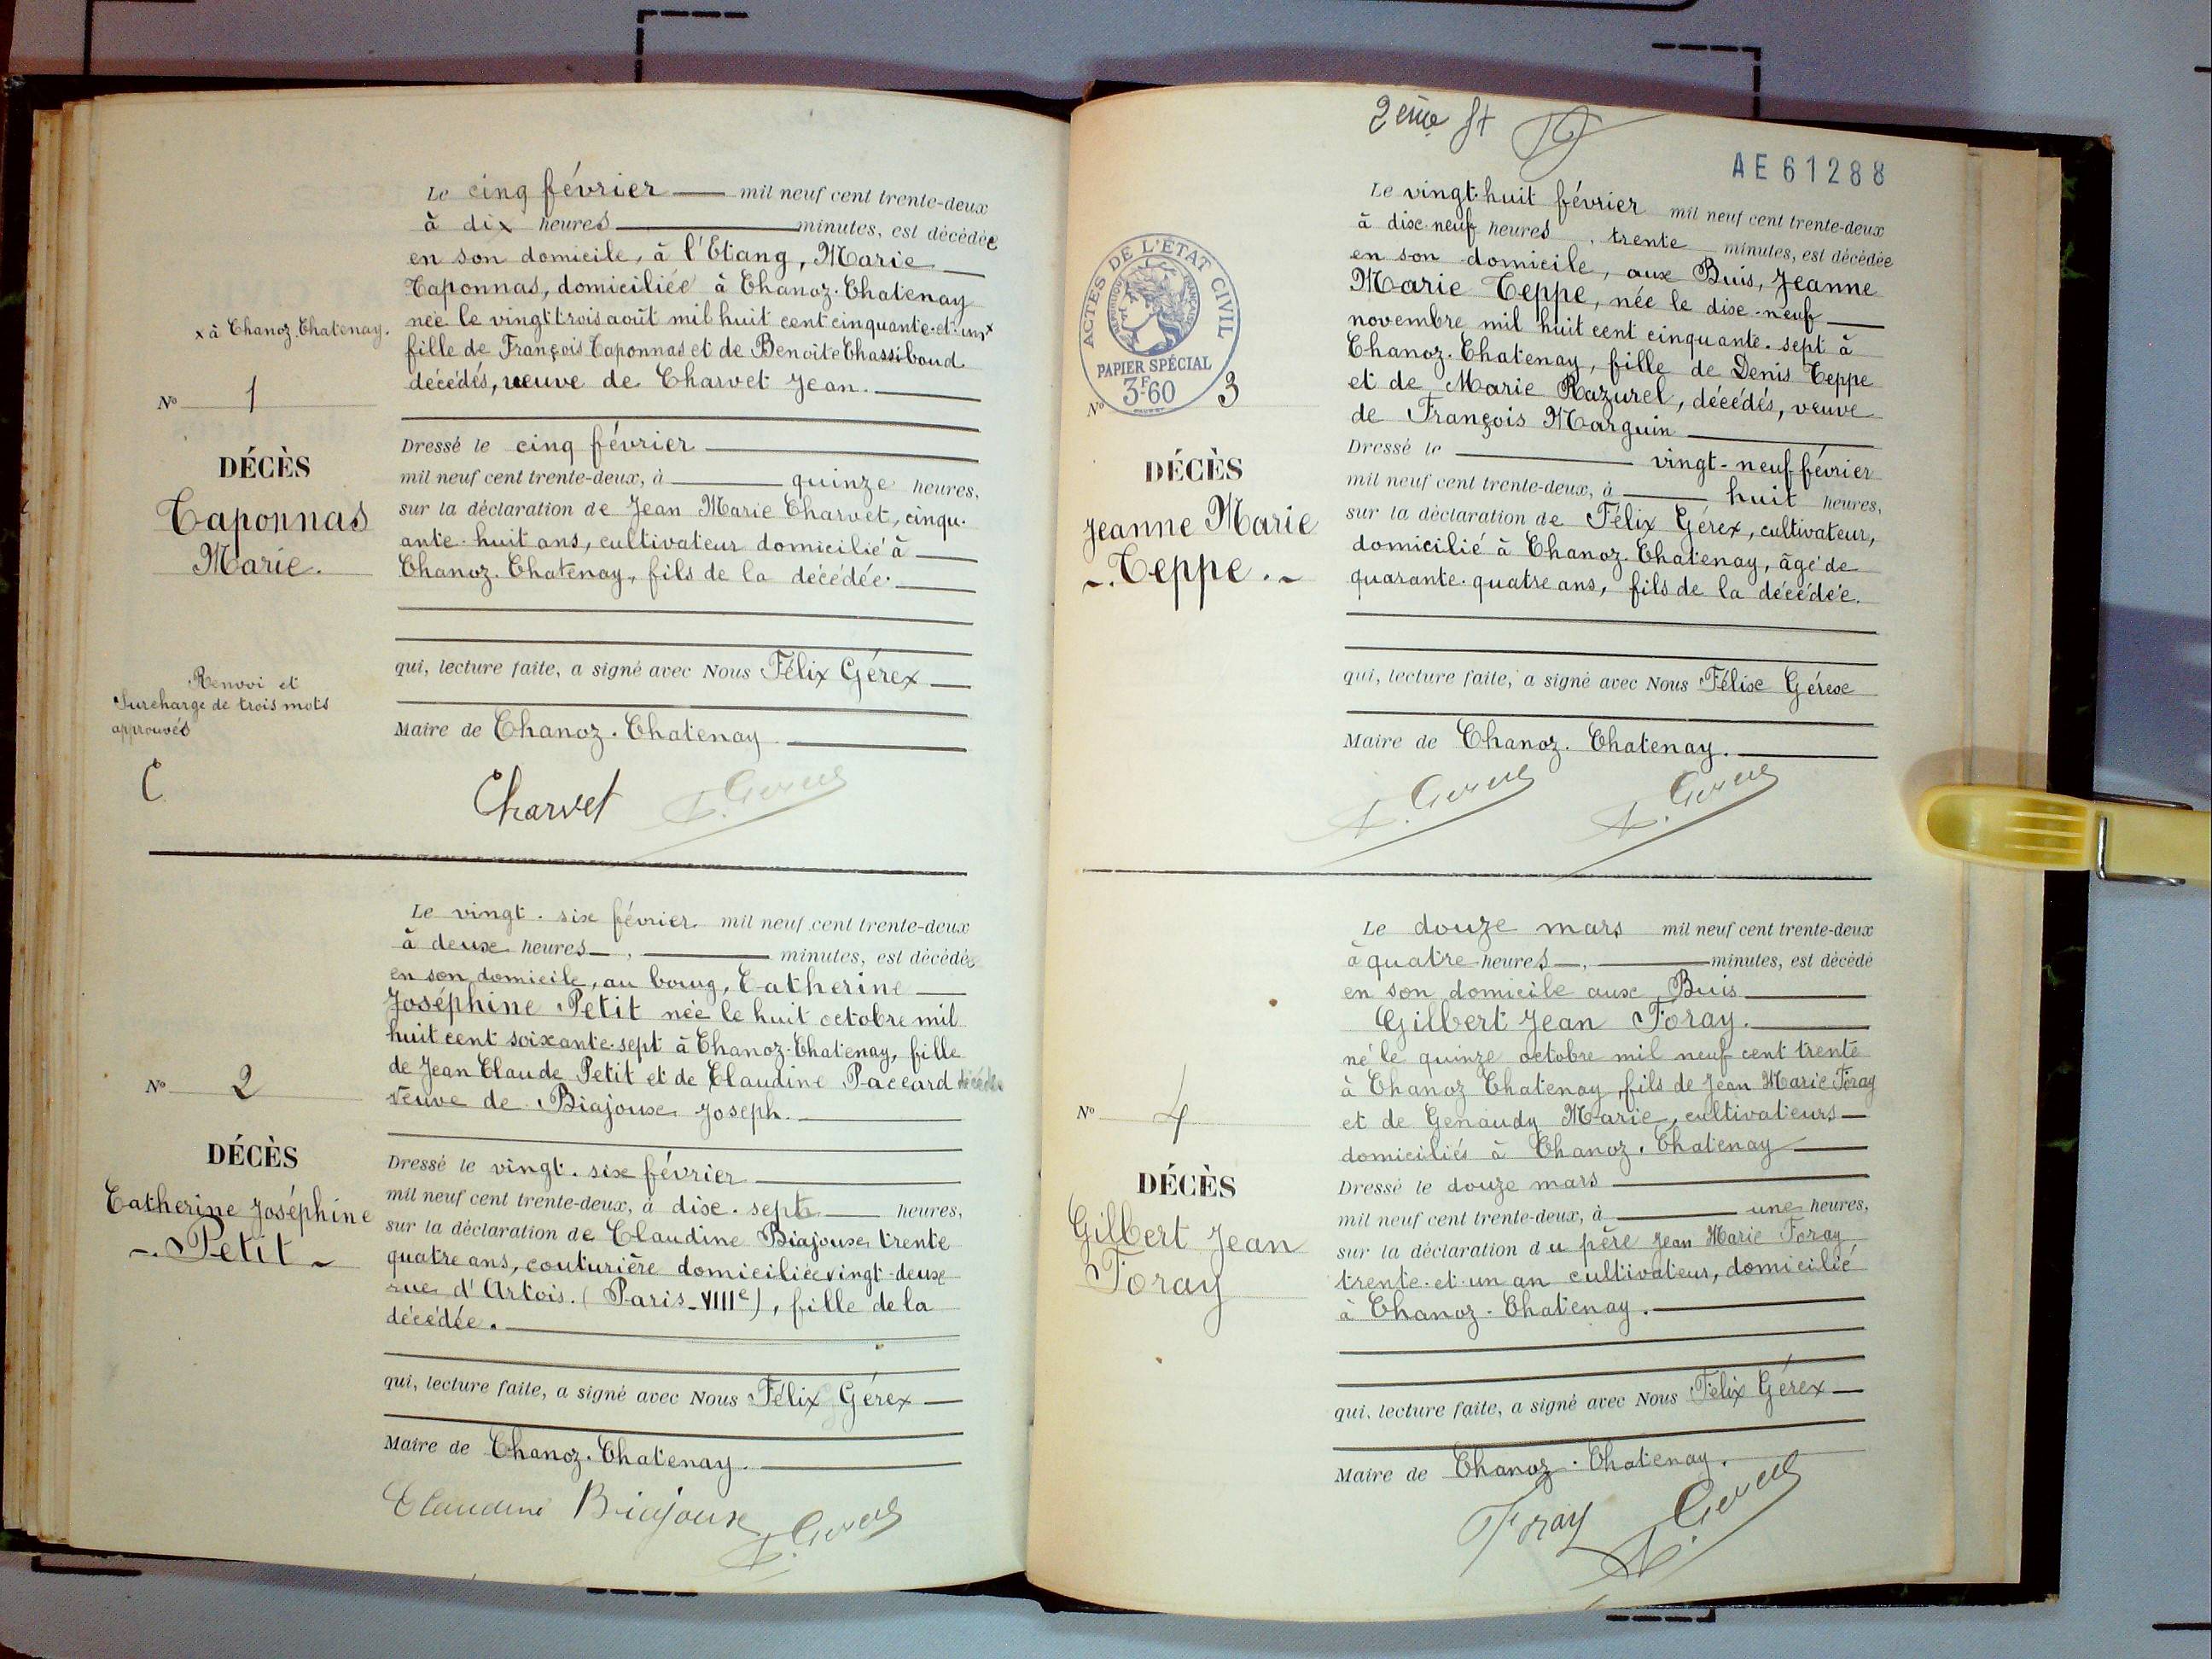 Le cinq février mil neuf cent trente-deux
à dix heures minutes, est décédée
en son domicile, à l'Etang, Marie
Taponnas, domiciliée à Chanoz-Chatenay
x à Chanoz-Chatenay.
née le vingt trois août mil huit cent cinquante-et-un x
fille de François Taponnas et de Benoîte Chassiboud
décédés, veuve de Charvet Jean.
N° 1
DÉCÈS
Taponnas
Marie.
Dressé le cinq février
mil neuf cent trente-deux, à quinze heures,
sur la déclaration de Jean Marie Charvet, cinqu-
ante-huit ans, cultivateur domicilié à
Chanoz-Chatenay, fils de la décédée.
qui, lecture faite, a signé avec Nous Félix Gérex
Renvoi et
Surcharge de trois mots
approuvés
C
Maire de Chanoz-Chatenay
Charvet
Le vingt-six février mil neuf cent trente-deux
à deux heures, minutes, est décédée
en son domicile, au bourg, Catherine
Joséphine Petit née le huit octobre mil
huit cent soixante-sept à Chanoz-Chatenay, fille
de Jean Claude Petit et de Claudine Paccard décédés
Veuve de Biajoux Joseph.
N° 2
DÉCÈS
Catherine Joséphine
-. Petit -
Dressé le vingt-six février
mil neuf cent trente-deux, à dix-sept heures,
sur la déclaration de Claudine Biajoux, trente
quatre ans, couturière domiciliée vingt-deux
rue d'Artois. (Paris-VIIIe), fille de la
décédée.
qui, lecture faite, a signé avec Nous Félix Gérex
Maire de Chanoz-Chatenay.
Claudine Biajoux F. Gérex
2ème St
AE61288
Le vingt-huit février mil neuf cent trente-deux
à dix-neuf heures, trente minutes, est décédée
en son domicile, aux Buis, Jeanne
Marie Teppe, née le dix-neuf
novembre mil huit cent cinquante-sept à
Chanoz-Chatenay, fille de Denis Teppe
et de Marie Razurel, décédés, veuve
de François Marguin
ACTES DE L'ÉTAT CIVIL
RÉPUBLIQUE FRANÇAISE
PAPIER SPÉCIAL
3F60
N° 3
DÉCÈS
Jeanne Marie
-. Teppe. -
Dressé le vingt-neuf février
mil neuf cent trente-deux, à huit heures,
sur la déclaration de Félix Gérex, cultivateur,
domicilié à Chanoz-Chatenay, âgé de
quarante-quatre ans, fils de la décédée.
qui, lecture faite, a signé avec Nous Félix Gérex
Maire de Chanoz-Chatenay.
F. Gérex F. Gérex
Le douze mars mil neuf cent trente-deux
à quatre heures, minutes, est décédé
en son domicile aux Buis
Gilbert Jean Foray.
né le quinze octobre mil neuf cent trente
à Chanoz Chatenay, fils de Jean Marie Foray
et de Genaudy Marie, cultivateurs
domiciliés à Chanoz-Chatenay
N° 4
DÉCÈS
Gilbert Jean
Foray
Dressé le douze mars
mil neuf cent trente-deux, à une heures,
sur la déclaration du père Jean Marie Foray
trente-et-un an cultivateur, domicilié
à Chanoz-Chatenay.
qui, lecture faite, a signé avec Nous Félix Gérex
Maire de Chanoz-Chatenay.
Foray F. Gérex